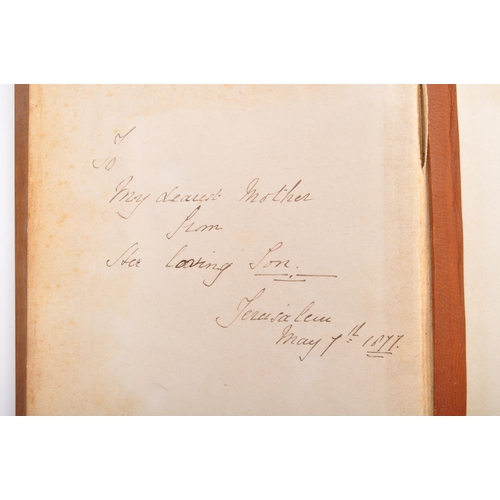 To
My dearest Mother
from
Her loving Son.
Jerusalem
May 7th 1877.